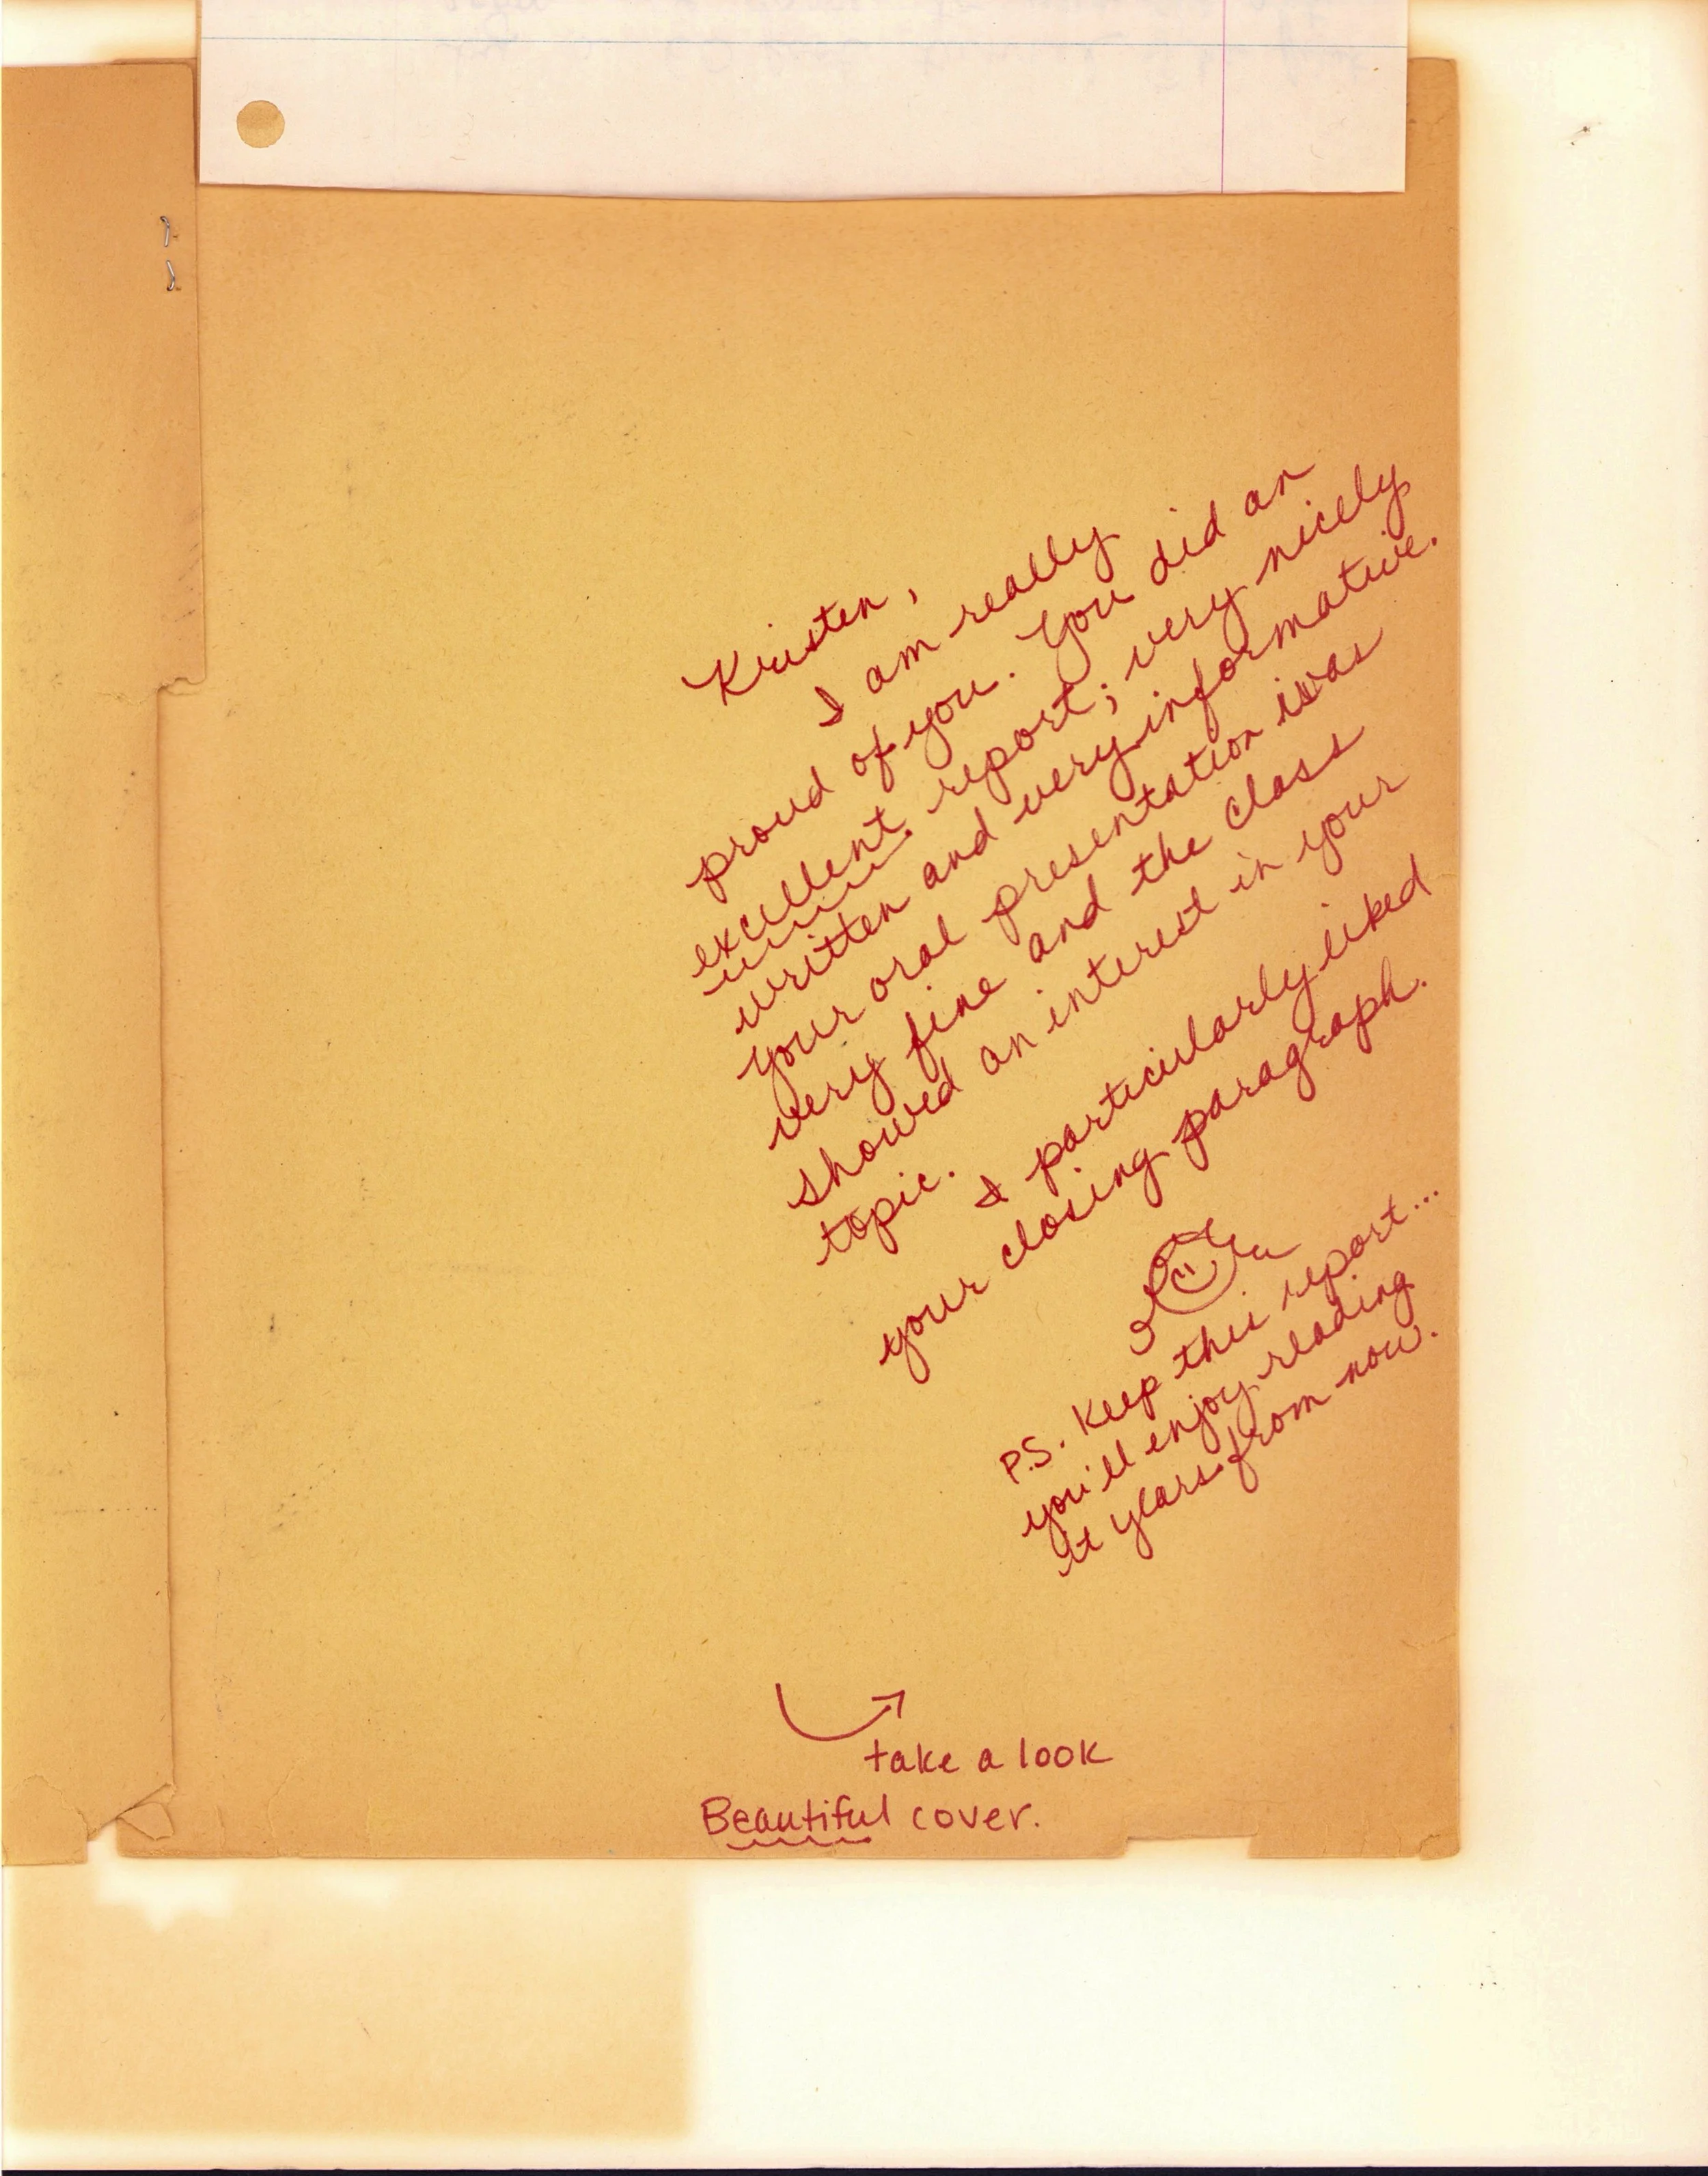 Kristen,
I am really
proud of you. You did an
excellent report; very nicely
written and very informative.
Your oral presentation was
very fine and the class
showed an interest in your
topic.
I particularly liked
your closing paragraph.
P.S. Keep this report...
you'll enjoy reading
it years from now.
take a look
Beautiful cover.